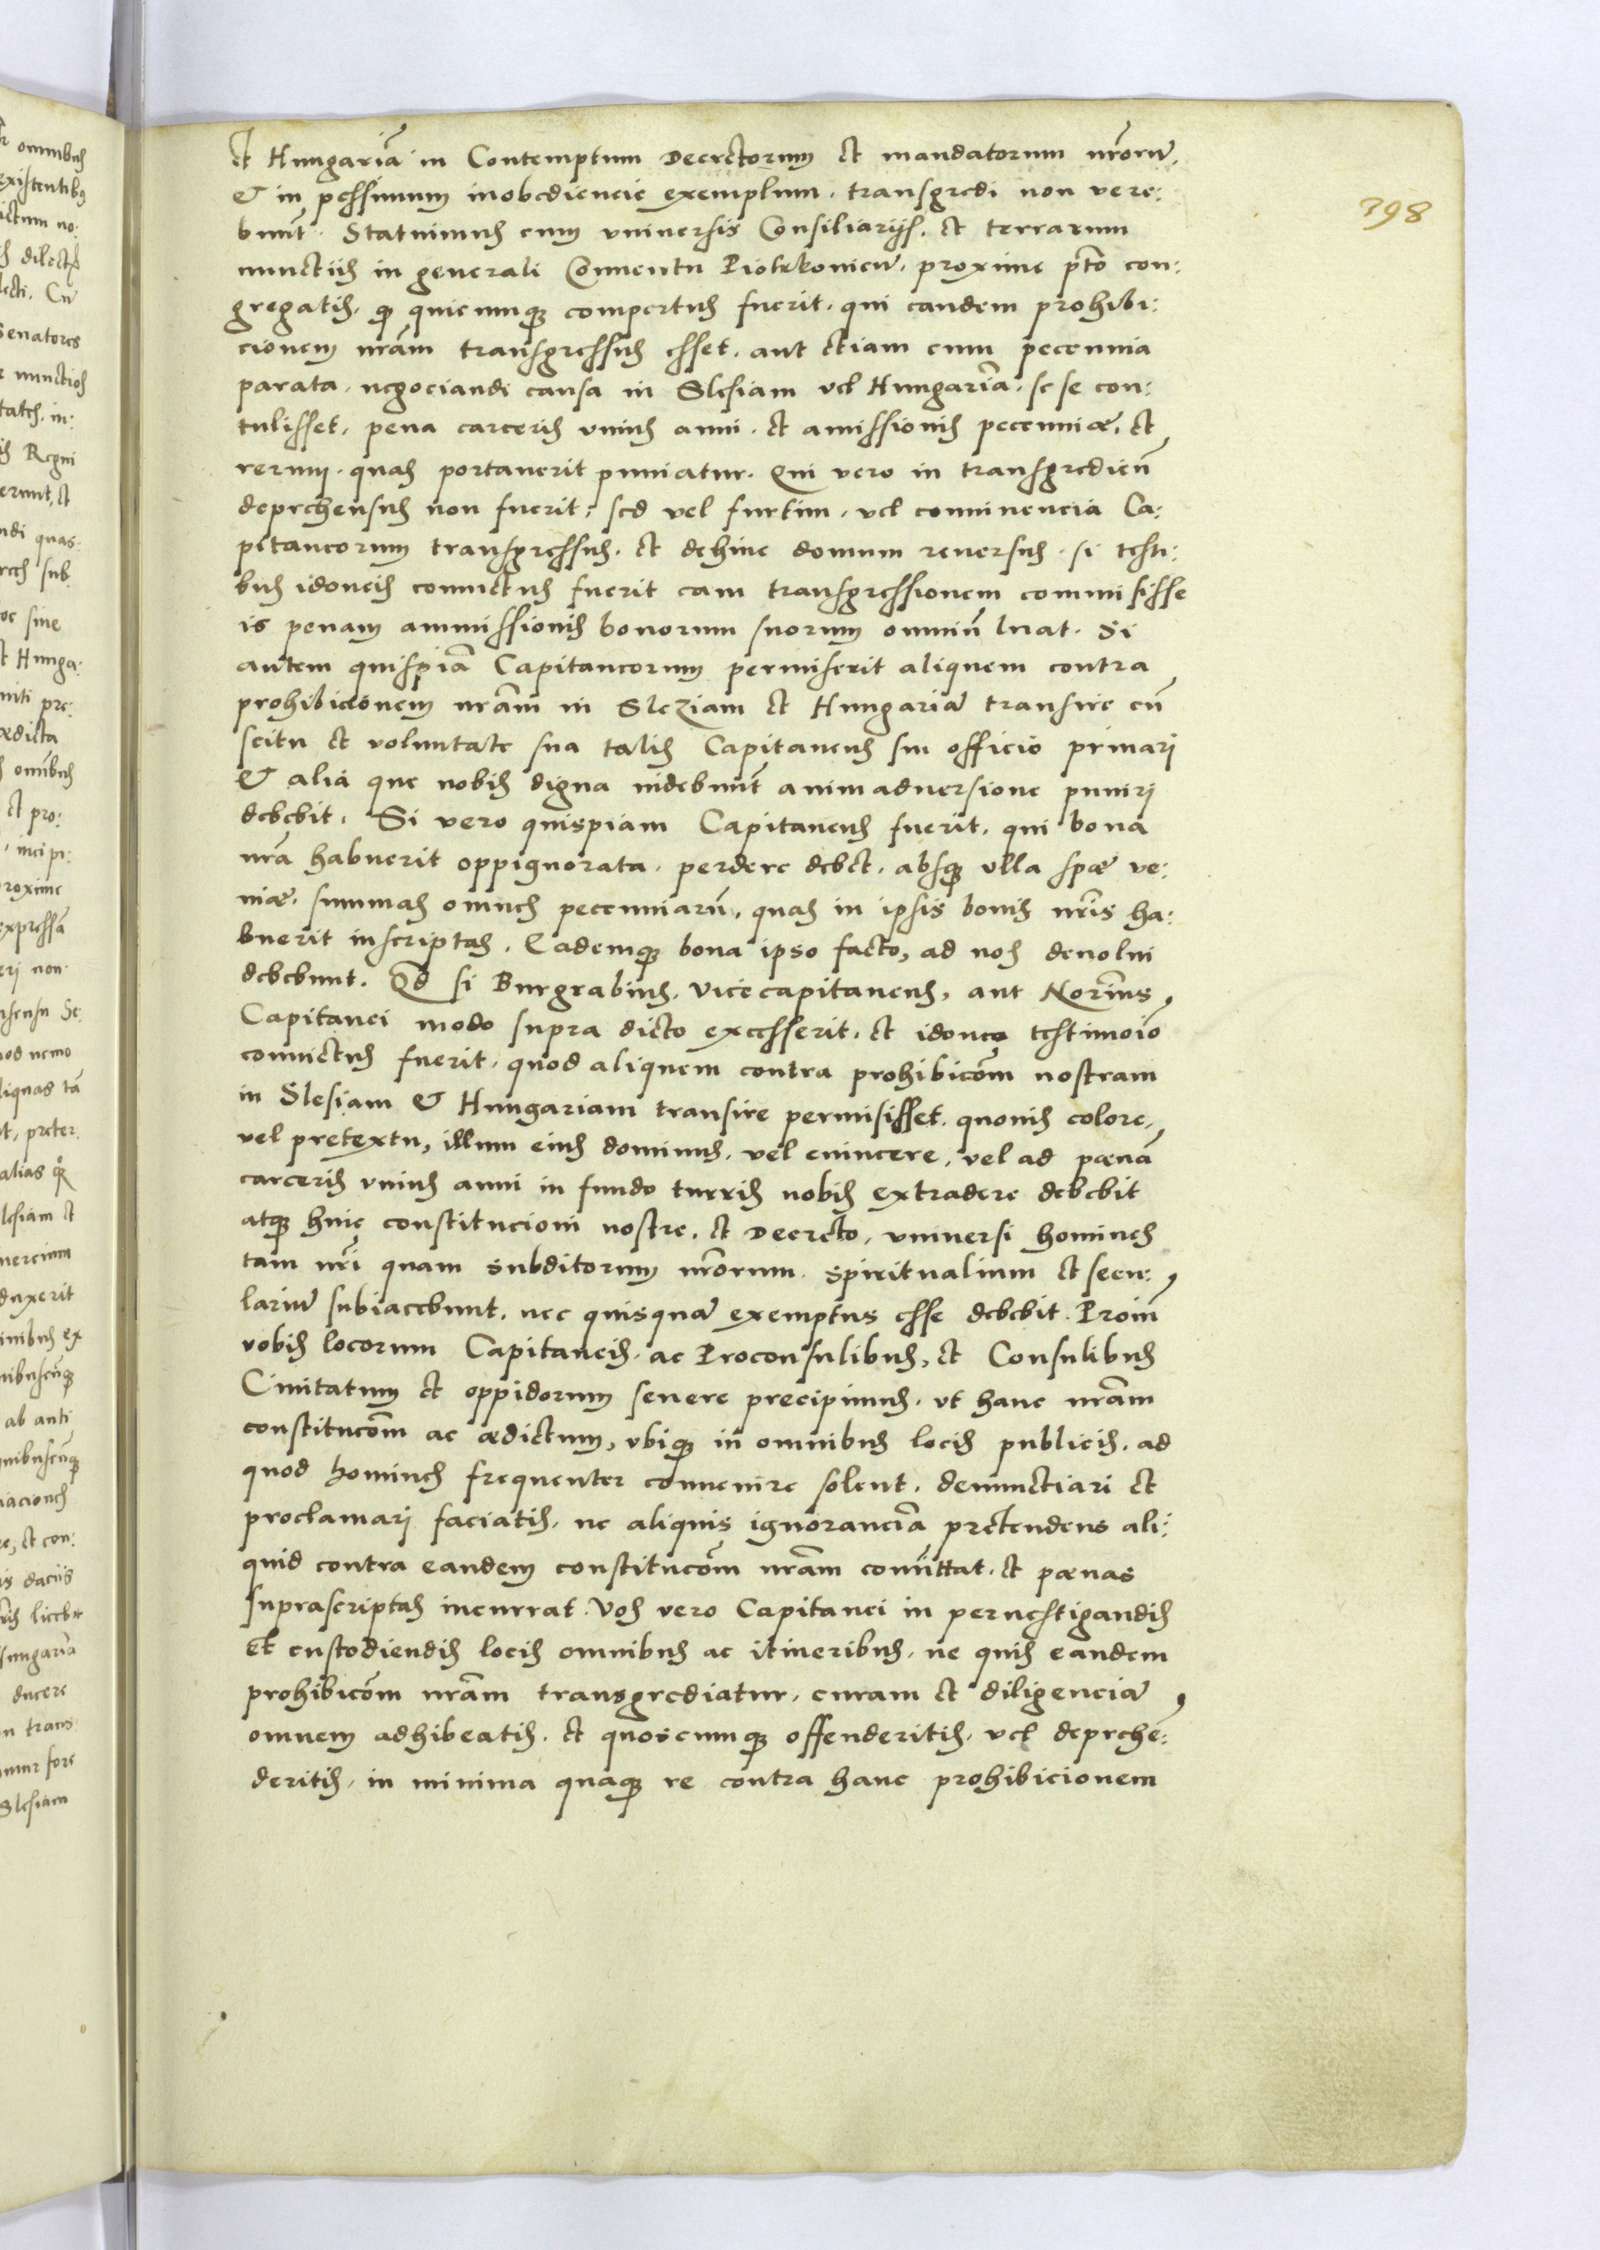 398
et Hungariã in Contemptum Decretorum et mandatorum nr̃orũ,
& in pessimum inobediencie exemplum. transgredi non vere:
bunt̃. Statuimus cum vniuersis Consiliarijs. et terrarum
nunctiis in generali Conuentu Piotrkovicñ. proxime pr̃to con:
gregatis. qp̃ quicunqȝ compertus fuerit. qui eandem prohibi:
cionem nr̃am transgressus esset. aut etiam cum pecunnia
parata. negociandi causa in Slesiam vel Hungariã. se se con:
tulisset. pena carceris vnius anni. et amissionis pecunniæ, et
rerum. quas portauerit puniatur. Qui vero in transgrediẽn
deprehensus non fuerit, sed vel furtim. vel conniuencia Ca:
pitaneorum transgressus. et dehinc domum reuersus. si testi:
bus idoneis conuictus fuerit eam transgressionem commisisse
is penam ammissionis bonorum suorum omniũ luat. Si
autem quispiã Capitaneorum permiserit aliquem contra
prohibicionem nr̃am in Sleziam et Hungariã transire cũ
scitu et voluntate sua talis Capitaneus sui officio priuari
& alia que nobis digna uidebunt̃ animaduersione puniri
debebit. Si vero quispiam Capitaneus fuerit. qui bona
nr̃a habuerit oppignorata. perdere debet. absqȝ vlla spæ ve:
niæ. summas omnes pecunniarũ, quas in ipsis bonis nr̃is ha:
buerit inscriptas. Eademqȝ bona ipso facto, ad nos deuolui
debebunt. Qd̃ si Burgrabius. Vicecapitaneus, aut Nor̃ius,
Capitanei modo supra dicto excesserit. et idoneo testimoĩo
conuictus fuerit. quod aliquem contra prohibicõm nostram
in Slesiam & Hungariam transire permisisset. quouis colore,
vel pretextu, illum eius dominus. vel euincere, vel ad pænã
carceris vnius anni in fundo turris nobis extradere debebit
atqȝ huic constitucioni nostre. et Decreto, vniuersi homines
tam nr̃i quam subditorum nr̃orum. spiritualium et secu:
lariũ subiacebunt. nec quisquã exemptus esse debebit. Proiñ
vobis locorum Capitaneis. ac Proconsulibus, et Consulibus
Ciuitatum et oppidorum seuere precipimus. vt hanc nr̃am
constitucõm ac ædictum, vbiqȝ in omnibus locis publicis. ad
quod homines frequenter conuenire solent. denunctiari et
proclamari faciatis. ne aliquis ignoranciã pretendens ali:
quid contra eandem constitucõm nr̃am comittat. et pænas
suprascriptas incurrat. Vos vero Capitanei in peruestigandis
Et custodiendis locis omnibus ac itineribus. ne quis eandem
prohibicõm nr̃am transgrediatur, curam et diligenciã
omnem adhibeatis. et quoscumqȝ offenderitis. vel deprehẽ:
deritis. in minima quaqȝ re contra hanc prohibicionem